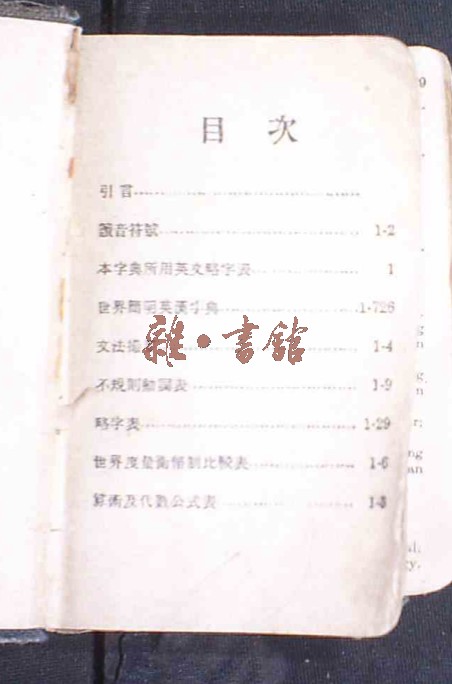 目 次
引言
讀音符號 1-2
本字典所用英文略字表 1
世界簡明英漢字典 1-726
文法 1-4
不規則動詞表 1-9
略字表 1-29
世界度量衡幣制比較表 1-6
算術及代數公式表 1-3
雜·書館
9